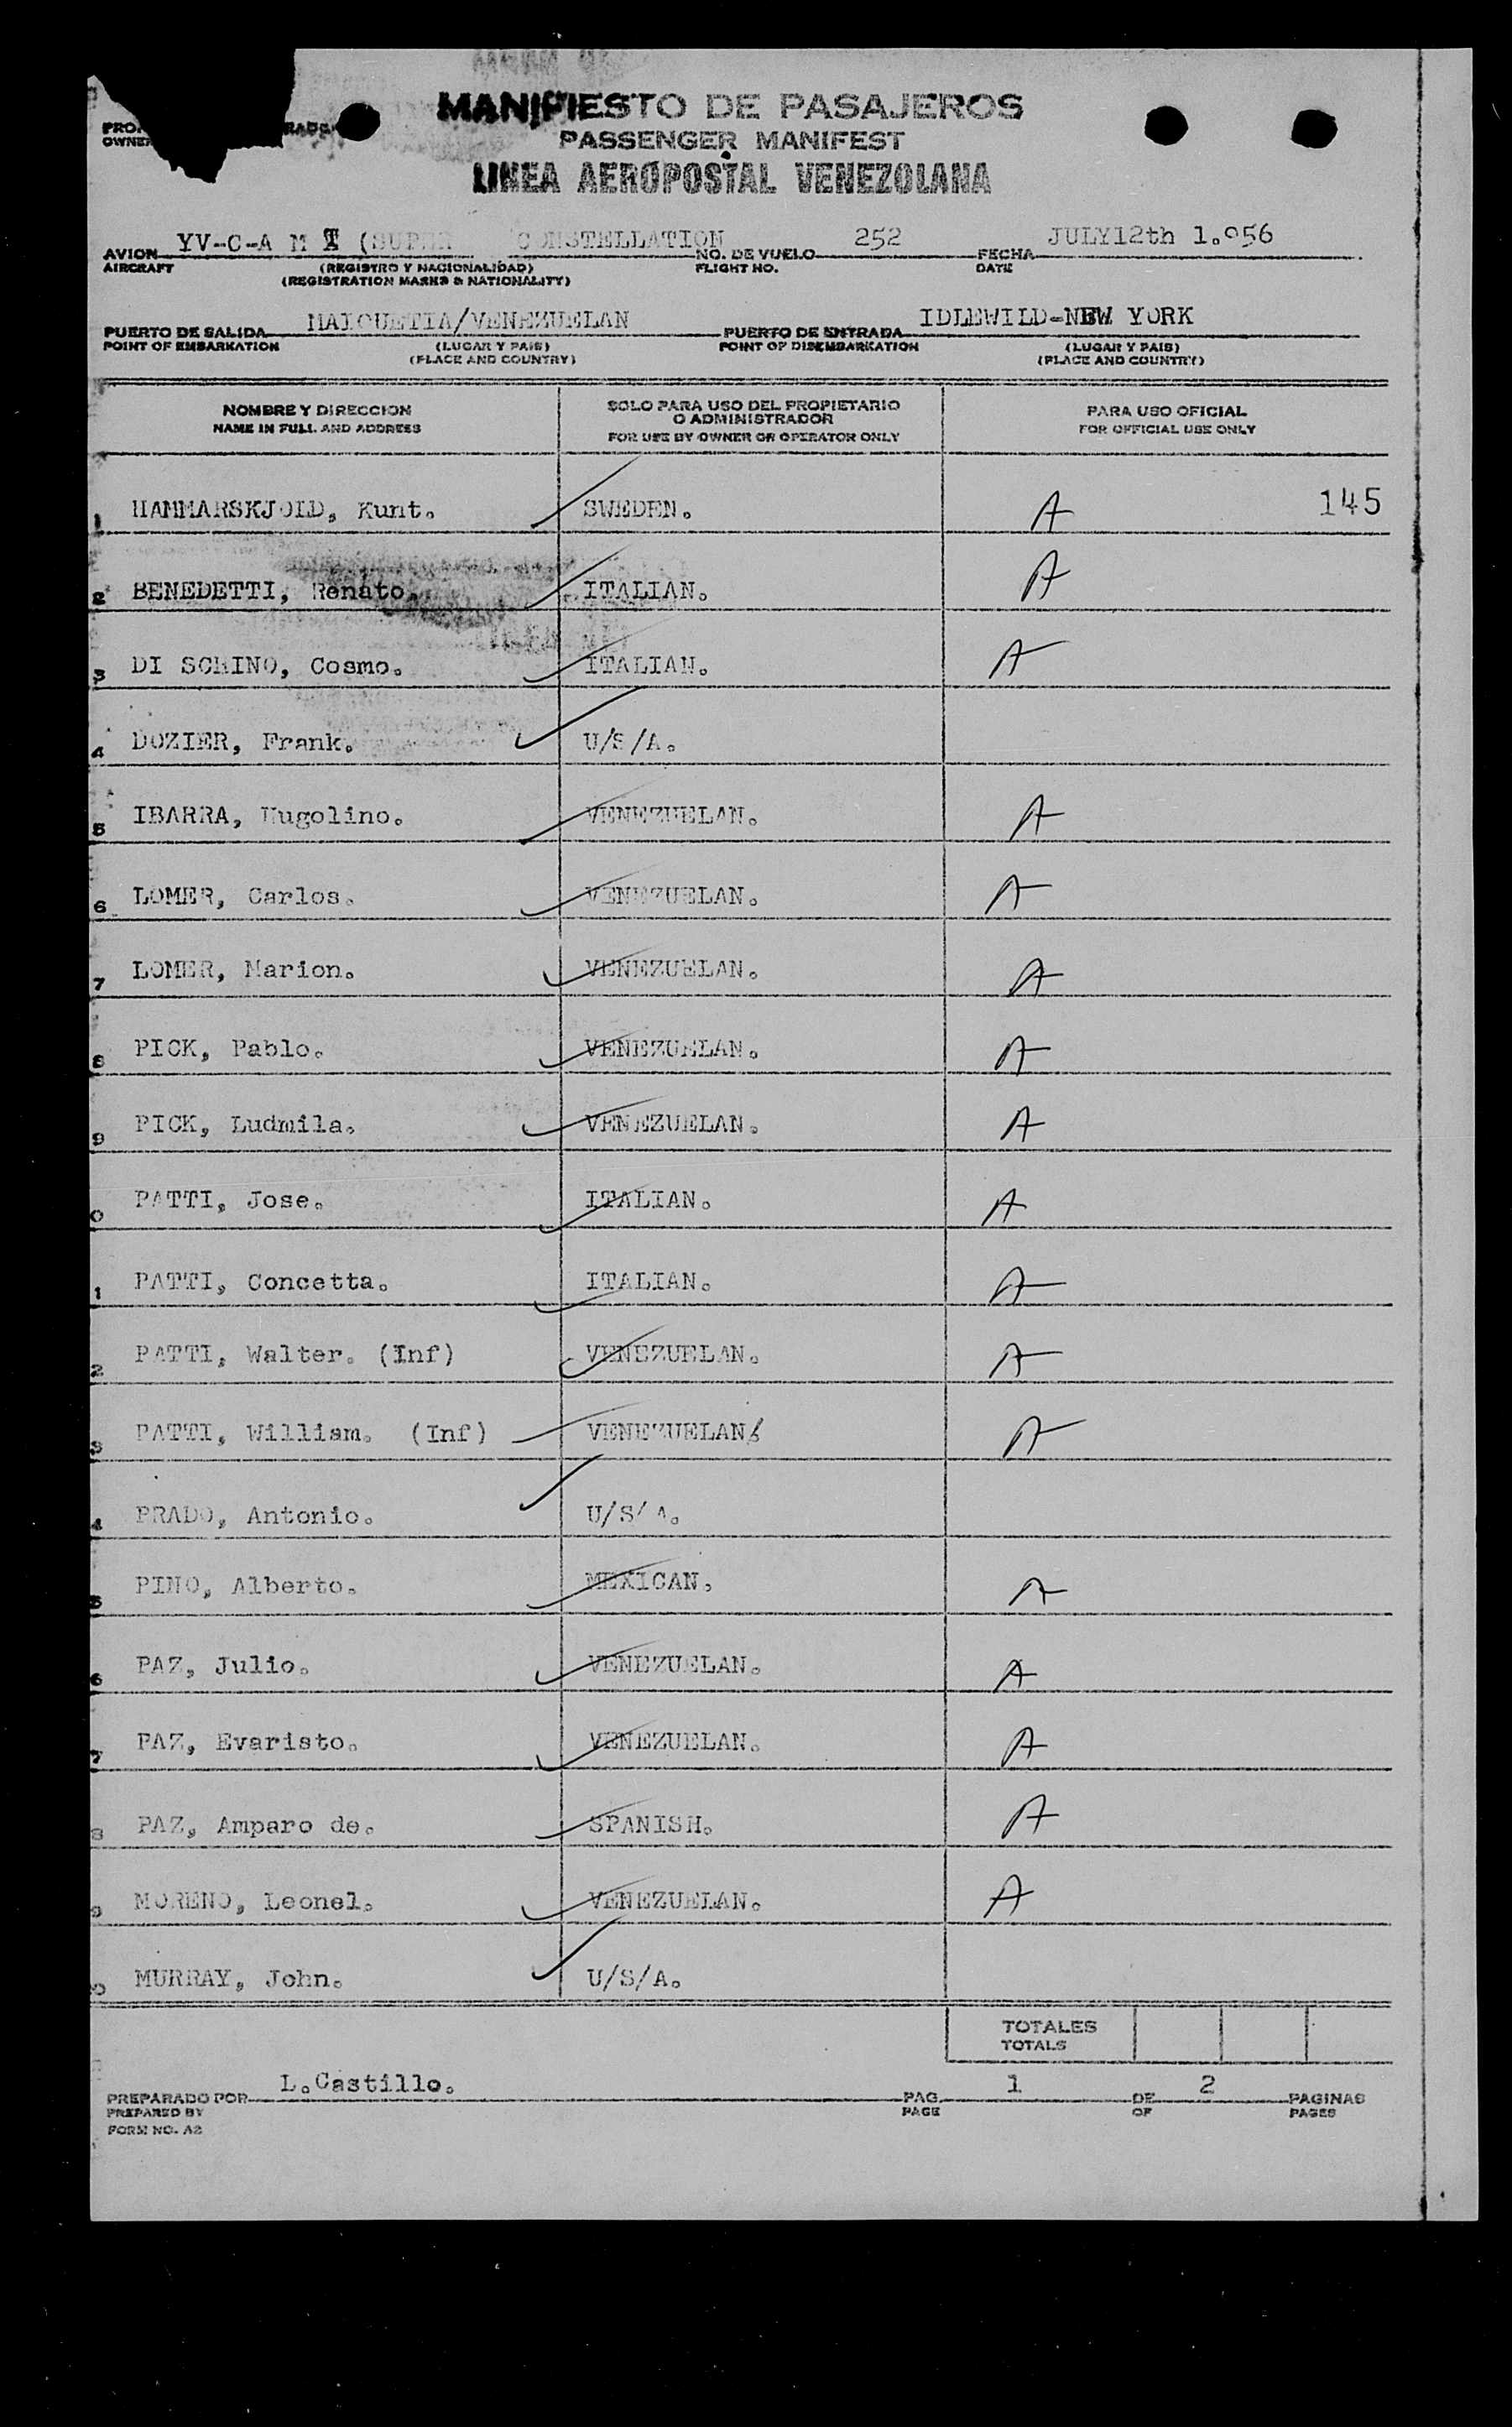 MANIFIESTO DE PASAJEROS
PASSENGER MANIFEST
LINEA AEROPOSTAL VENEZOLANA
AVION YV-C-A M T (SUPER CONSTELLATION NO. DE VUELO 252 FECHA JULY12th 1.956
AIRCRAFT (REGISTRO Y NACIONALIDAD) FLIGHT NO. DATE
(REGISTRATION MARKS & NATIONALITY)
PUERTO DE SALIDA MAIQUETIA/VENEZUELAN PUERTO DE ENTRADA IDLEWILD-NEW YORK
POINT OF EMBARKATION (LUGAR Y PAIS) POINT OF DISEMBARKATION (LUGAR Y PAIS)
(PLACE AND COUNTRY) (PLACE AND COUNTRY)
NOMBRE Y DIRECCION SOLO PARA USO DEL PROPIETARIO O ADMINISTRADOR PARA USO OFICIAL
NAME IN FULL AND ADDRESS FOR USE BY OWNER OR OPERATOR ONLY FOR OFFICIAL USE ONLY
1 HAMMARSKJOLD, Kunt. SWEDEN. A 145
2 BENEDETTI, Renato. ITALIAN. A
3 DI SCHINO, Cosmo. ITALIAN. A
4 DOZIER, Frank. U/S/A.
5 IBARRA, Hugolino. VENEZUELAN. A
6 LOMER, Carlos. VENEZUELAN. A
7 LOMER, Marion. VENEZUELAN. A
8 PICK, Pablo. VENEZUELAN. A
9 PICK, Ludmila. VENEZUELAN. A
0 PATTI, Jose. ITALIAN. A
1 PATTI, Concetta. ITALIAN. A
2 PATTI, Walter. (Inf) VENEZUELAN. A
3 PATTI, William. (Inf) VENEZUELAN. A
4 PRADO, Antonio. U/S/A.
5 PINO, Alberto. MEXICAN. A
6 PAZ, Julio. VENEZUELAN. A
7 PAZ, Evaristo. VENEZUELAN. A
8 PAZ, Amparo de. SPANISH. A
9 MORENO, Leonel. VENEZUELAN. A
0 MURRAY, John. U/S/A.
TOTALES
TOTALS
PREPARADO POR L.Castillo. PAG. 1 DE 2 PAGINAS
PREPARED BY PAGE OF PAGES
FORM NO. A2